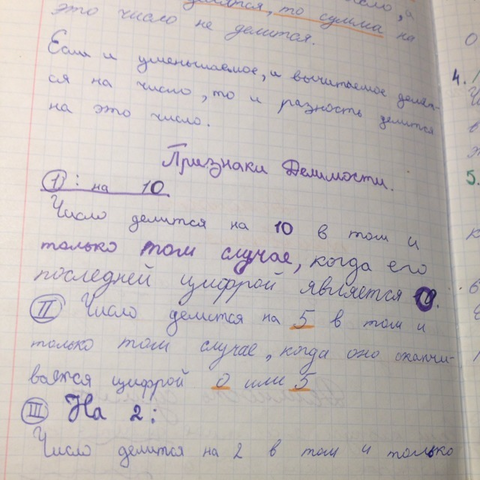 то сумма на
это число не делится.
Если и уменьшаемое, и вычитаемое делит-
ся на число, то и разность делится
на это число.
Признаки Делимости.
I : на 10
Число делится на 10 в том и
только том случае, когда его
последней цифрой является
II Число делится на 5 в том и
только том случае, когда оно оканчи-
вается цифрой 0 или 5
III На 2:
Число делится на 2 в том и только
4.
5.